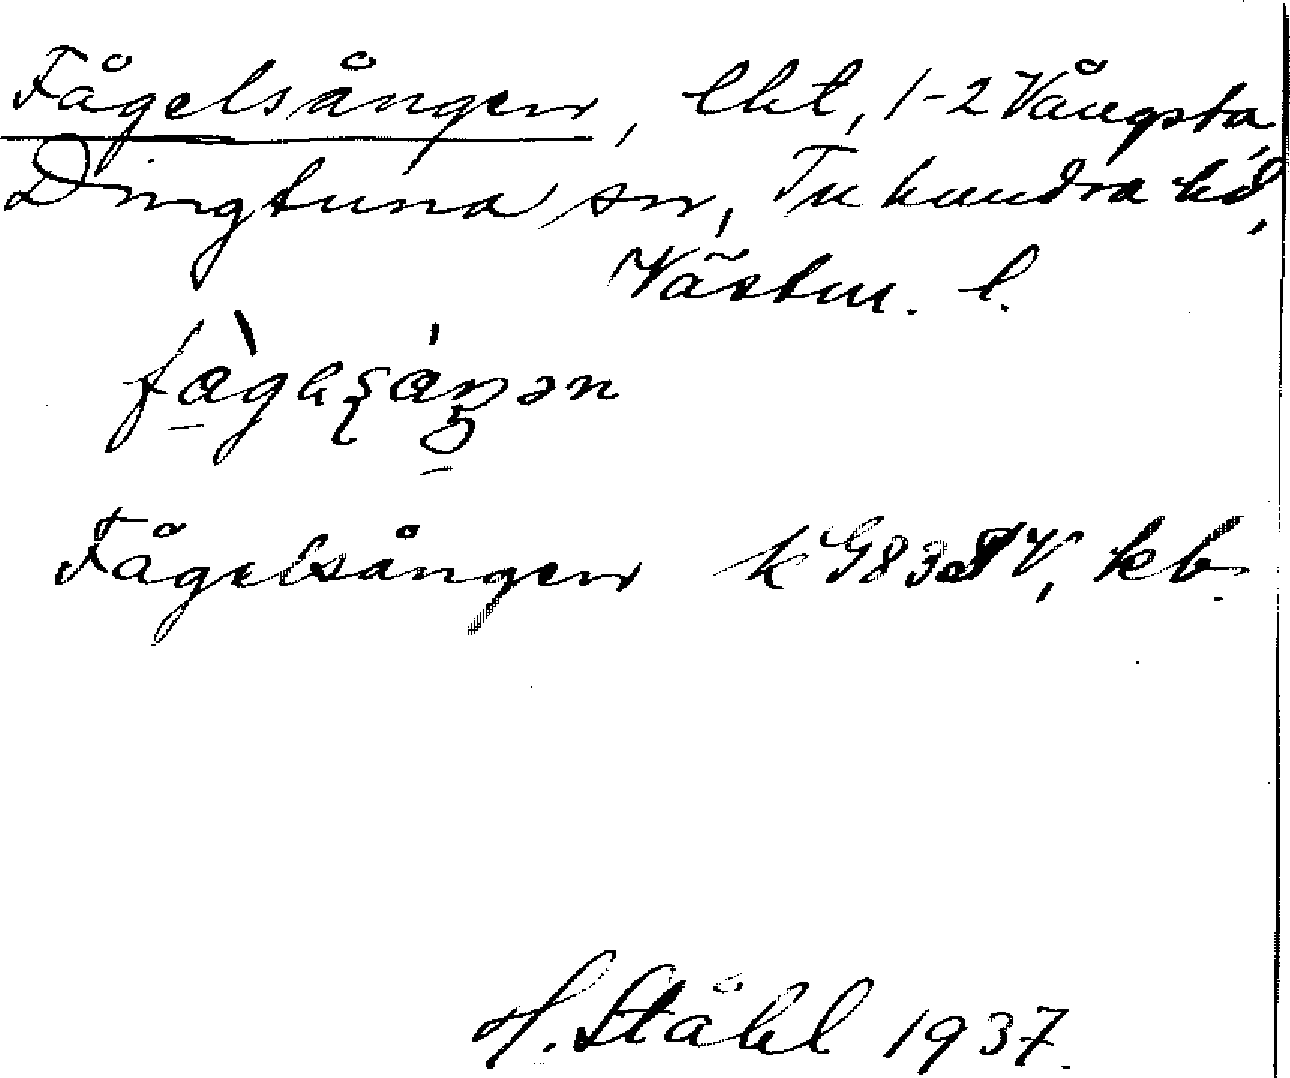 Fågelsången, lht, 1-2 Vångsta,
Dingtuna sn, Tuhundra hd,
Västm. l.
Fågelsången k G83 SV, kb.
H. Ståhl 1937.